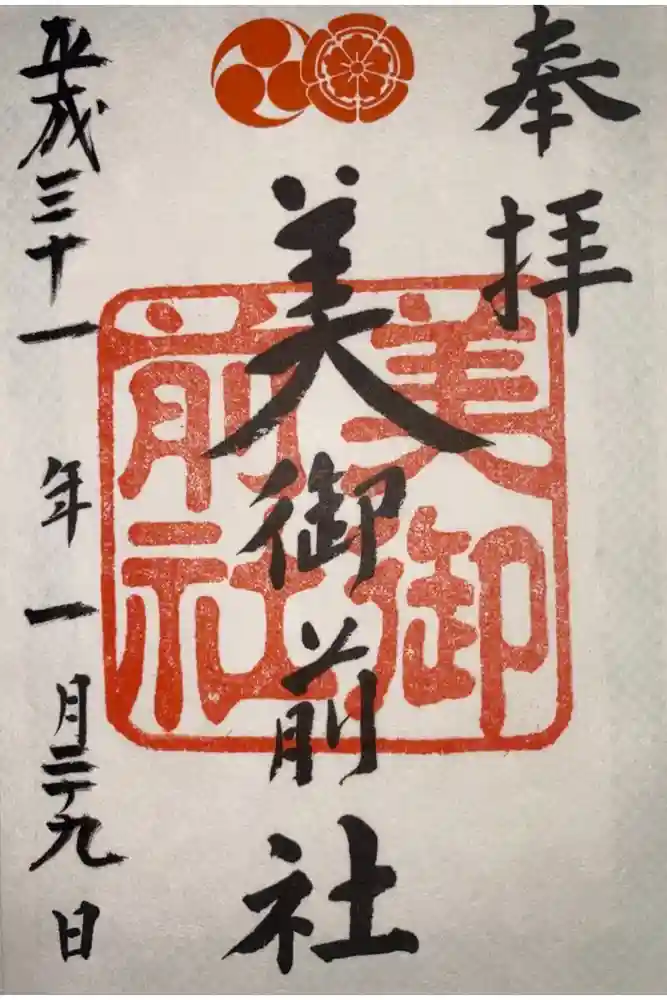 奉拝
美御前社
美御
前社
平成三十一年一月二十九日